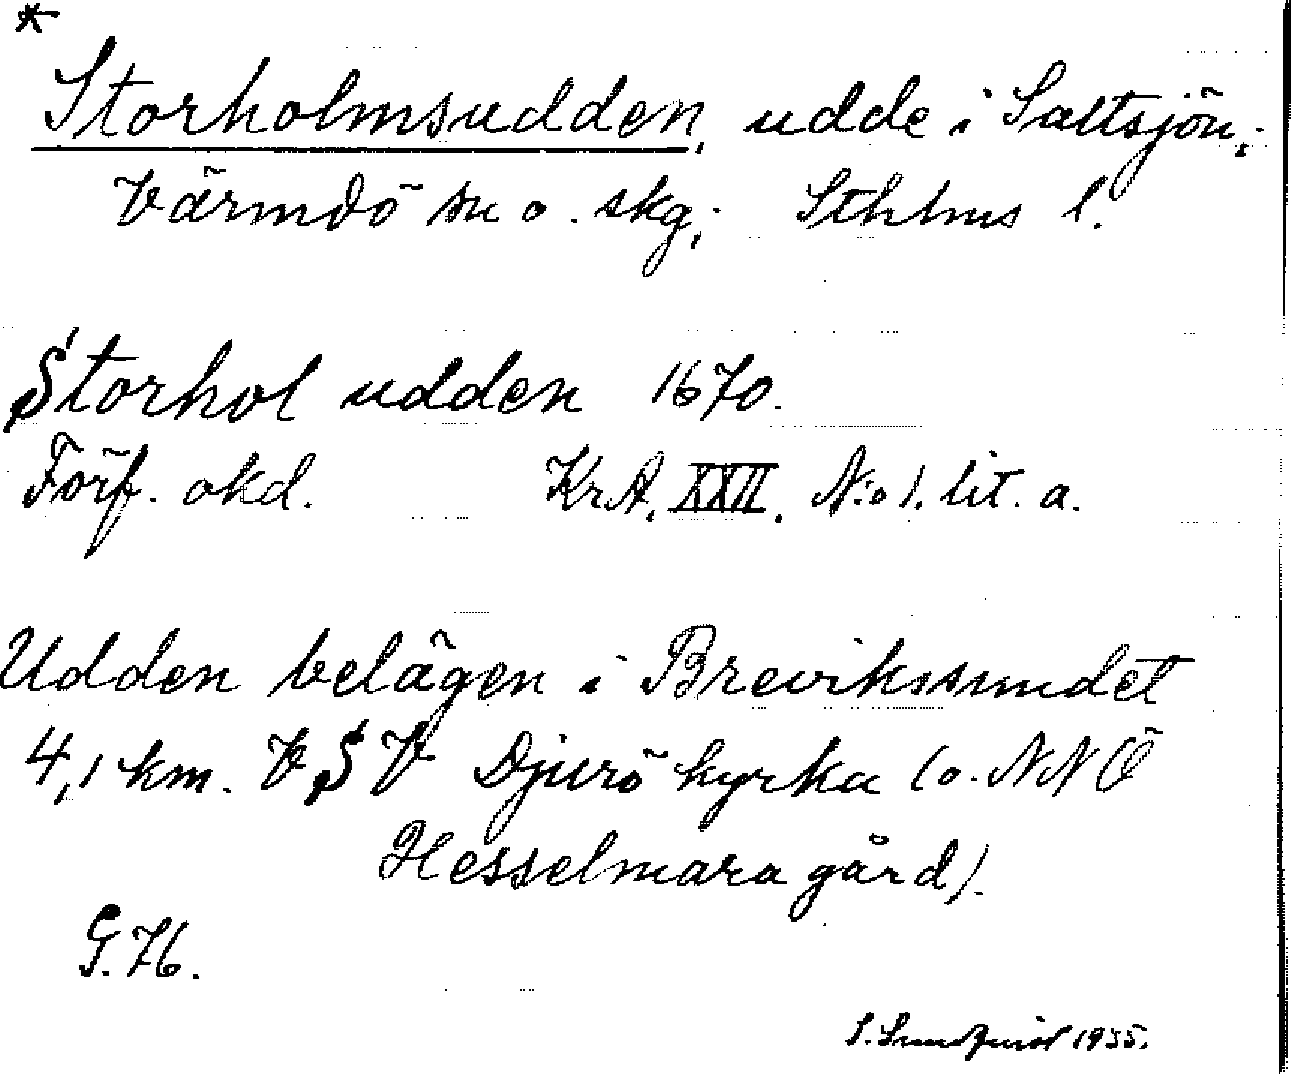 *
Storholmsudden, udde i Saltsjön,
Värmdö sn o. skg, Sthlms l.
Storhol udden 1670.
Förf. okd. KrA, XXII. N:o 1. lit. a.
Udden belägen i Brevikssundet
4,1 km. V S V Djurö kyrka (o. N N Ö
Hesselmara gård).
G.76.
S. Sundquist 1935.